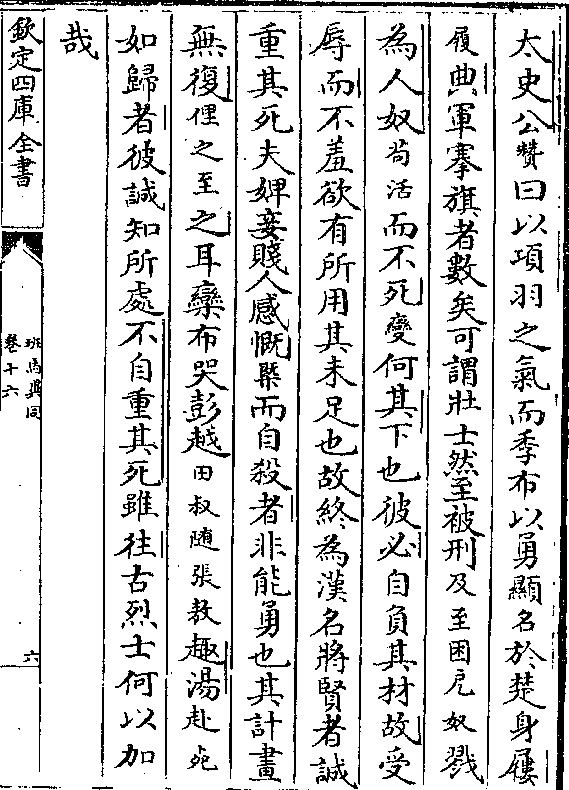 太史公贊曰以項羽之氣而季布以勇顯名於楚身屨
履典軍搴旗者數矣可謂壯士然至被刑及至困戹奴戮
為人奴苟活而不死變何其下也彼必自負其材故受
辱而不羞欲有所用其未足也故終為漢名將賢者誠
重其死夫婢妾賤人感慨槩而自殺者非能勇也其計畫
無復俚之至之耳欒布哭彭越田叔随張敖趣湯赴死
如歸者彼誠知所處不自重其死雖徃古烈士何以加
哉
欽定四庫全書
班馬異同
卷十六
六